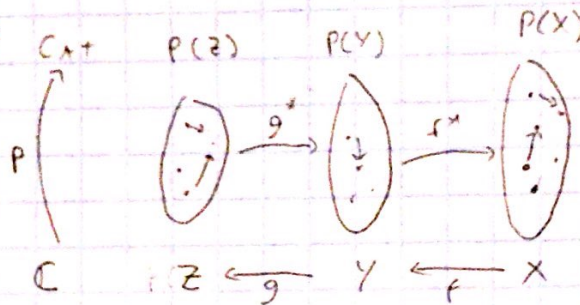 Cat P(Z) P(Y) P(X)
P g* f*
ℂ Z g Y f X